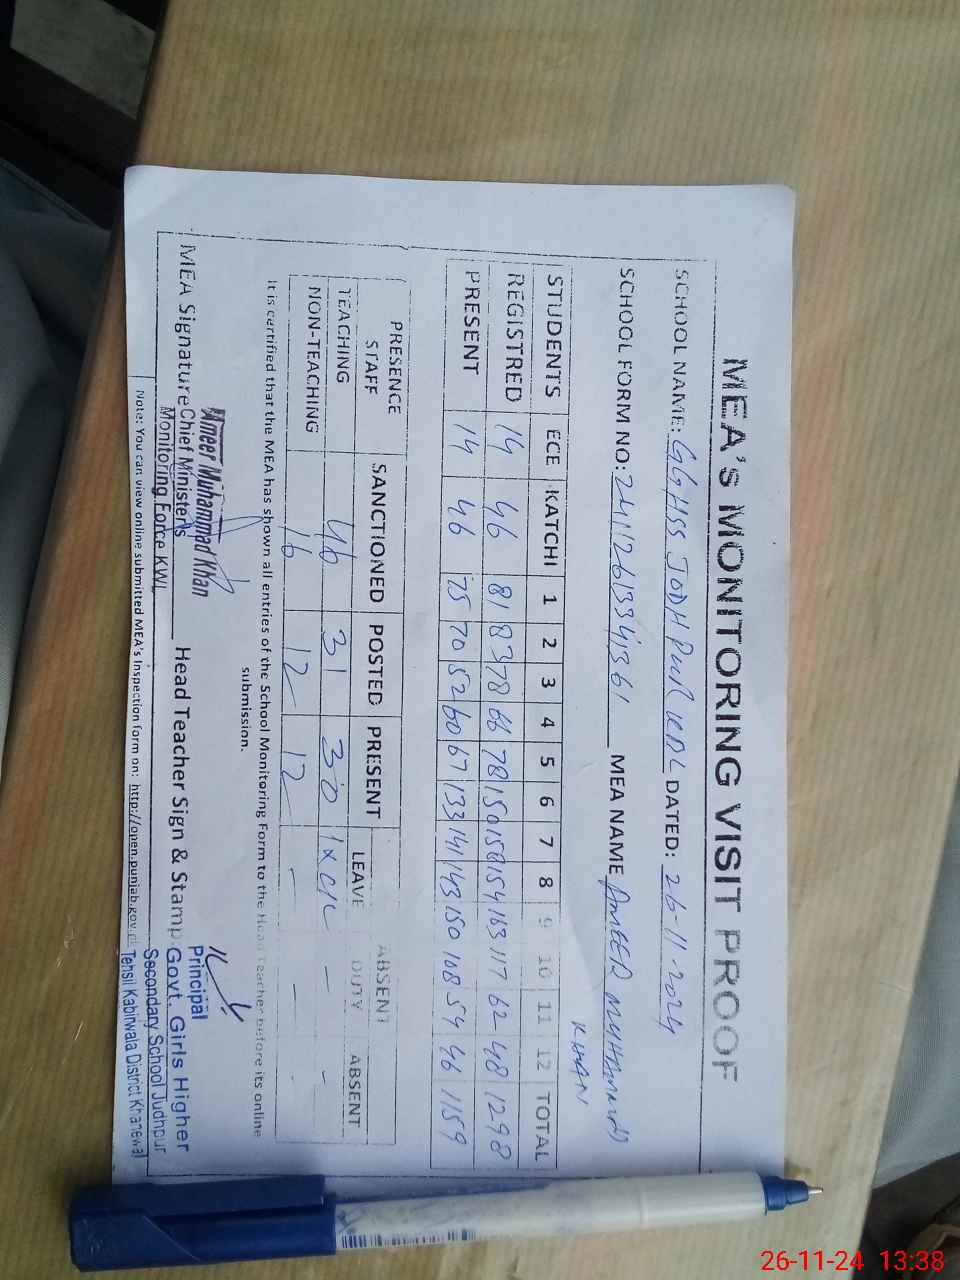 MEA's MONITORING VISIT PROOF
SCHOOL NAME: GGHSS JODHPUR DATED: 26-11-2024
SCHOOL FORM NO: MEA NAME AMEER MUHAMMAD
KHAN
STUDENTS ECE KATCHI 1 2 3 4 5 6 7 8 9 10 11 12 TOTAL
REGISTRED 14 46 81 83 78 66 78 150 150 154 163 117 62 48 1298
PRESENT 14 46 75 70 52 60 67 133 141 143 150 108 54 46 1159
PRESENCE STAFF SANCTIONED POSTED PRESENT ABSENT
LEAVE DUTY ABSENT
TEACHING 46 31 30 - -
NON-TEACHING 16 12 12 - - -
It is certified that the MEA has shown all entries of the School Monitoring Form to the Head Teacher before its online
submission.
Ameer Muhammad Khan
MEA Signature Chief Minister's
Monitoring Force KWL
Head Teacher Sign & Stamp
Principal
Govt. Girls Higher
Secondary School Judhpur
Tehsil Kabirwala District Khanewal
Note: You can view online submitted MEA's Inspection form on: http://open.punjab.gov.pk
26-11-24 13:38